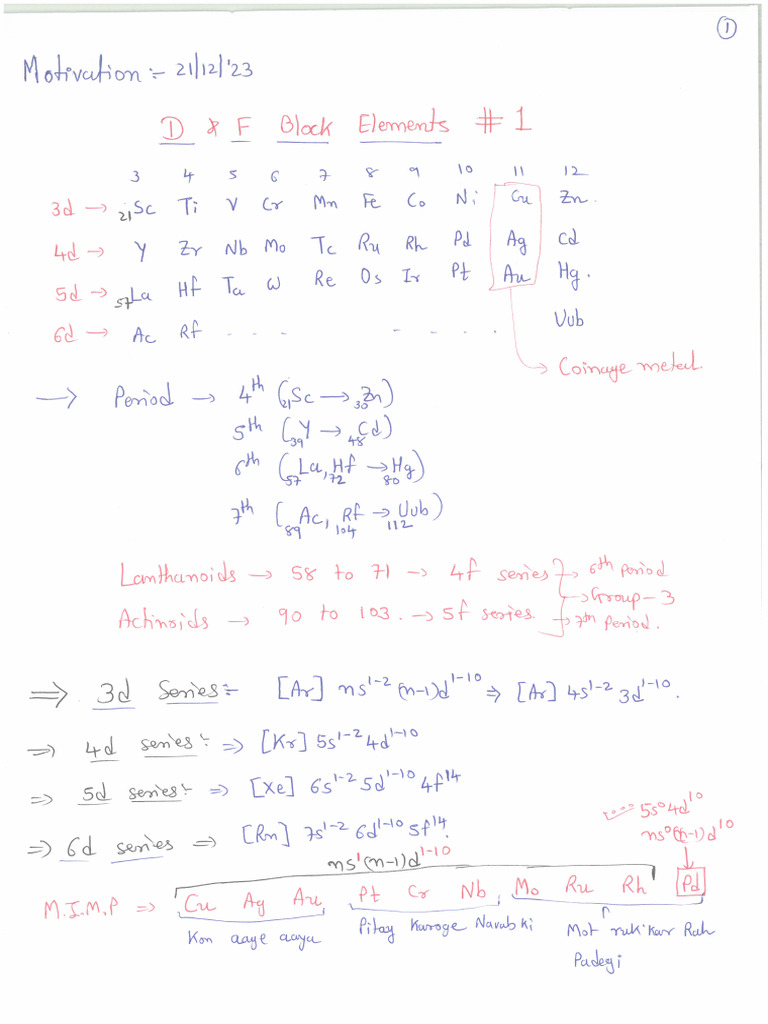 ①
Motivation :- 21/12/'23
D & F Block Elements #1
3 4 5 6 7 8 9 10 11 12
3d → ₂₁Sc Ti V Cr Mn Fe Co Ni Cu Zn.
4d → Y Zr Nb Mo Tc Ru Rh Pd Ag Cd
5d → ₅₇La Hf Ta W Re Os Ir Pt Au Hg.
6d → Ac Rf - - - - - - . . . . Uub
→ Coinage metal.
→ Period → 4th (₂₁Sc → ₃₀Zn)
5th (₃₉Y → ₄₈Cd)
6th (₅₇La, ₇₂Hf → ₈₀Hg)
7th (₈₉Ac, ₁₀₄Rf → ₁₁₂Uub)
Lanthanoids → 58 to 71 → 4f series → 6th period
→ Group-3
Actinoids → 90 to 103. → 5f series. → 7th Period.
⇒ 3d Series:- [Ar] ns¹⁻² (n-1)d¹⁻¹⁰ ⇒ [Ar] 4s¹⁻² 3d¹⁻¹⁰.
⇒ 4d series:- ⇒ [Kr] 5s¹⁻² 4d¹⁻¹⁰
⇒ 5d series:- ⇒ [Xe] 6s¹⁻² 5d¹⁻¹⁰ 4f¹⁴
5s⁰4d¹⁰
⇒ 6d series ⇒ [Rn] 7s¹⁻² 6d¹⁻¹⁰ 5f¹⁴.
ns⁰(n-1)d¹⁰
ns¹(n-1)d¹⁻¹⁰
M.I.M.P ⇒ Cu Ag Au Pt Cr Nb Mo Ru Rh Pd
Kon aaye aaya Pitay Karoge Navab ki Mot ruk kar Rah
Padegi